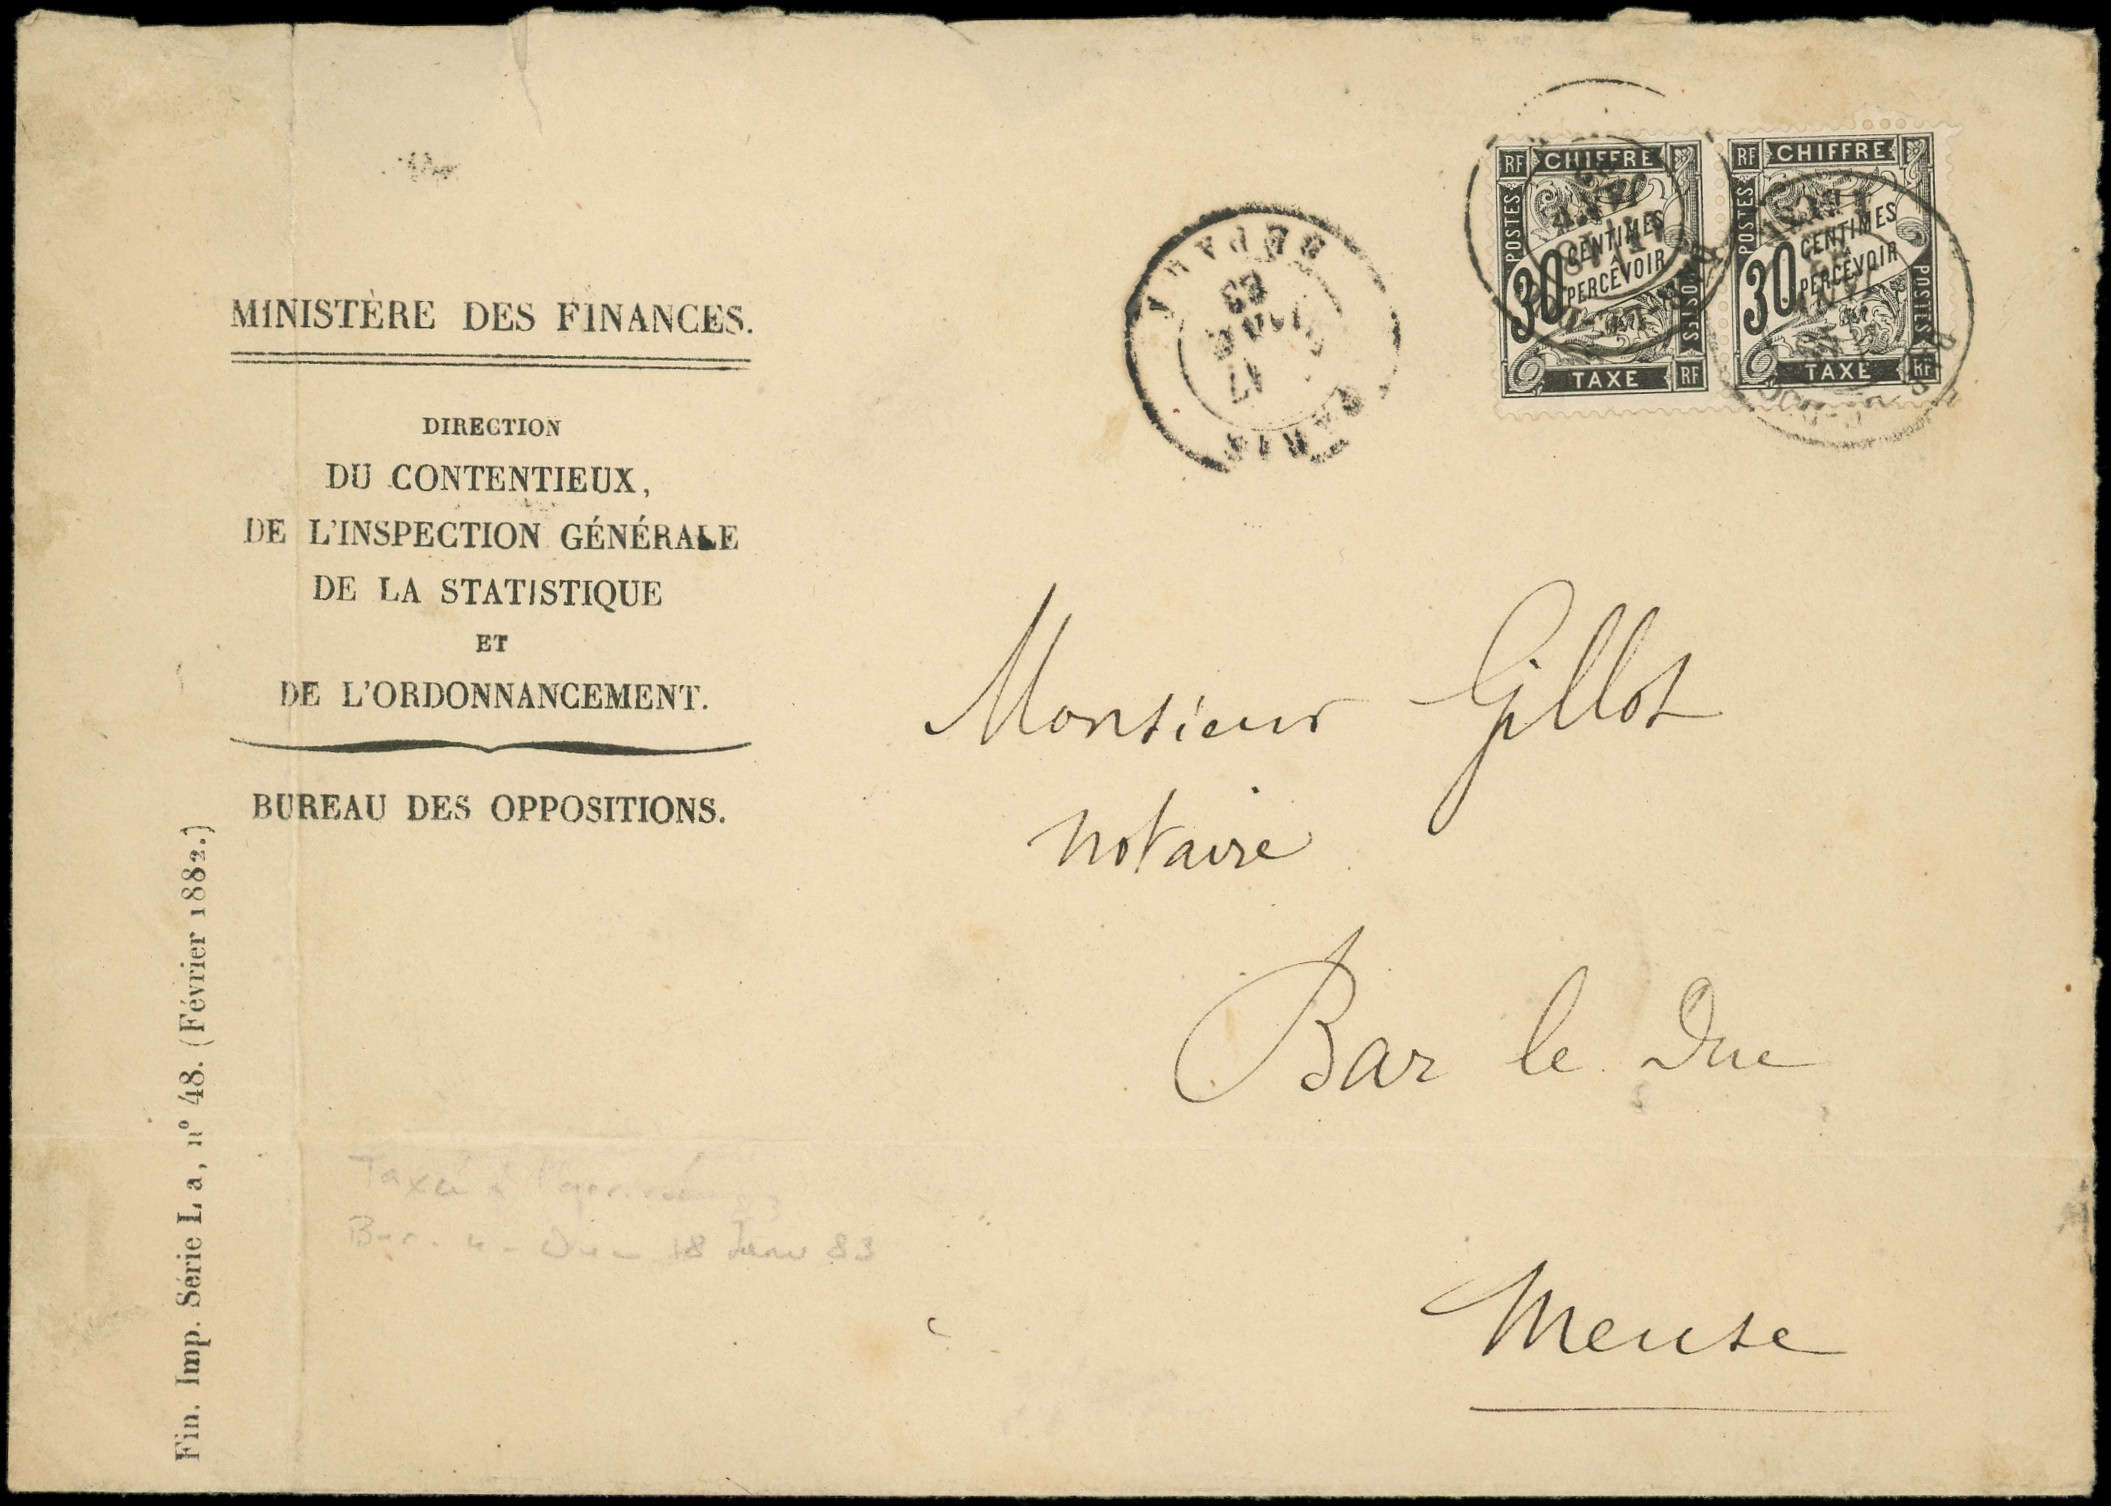 MINISTÈRE DES FINANCES.
DIRECTION
DU CONTENTIEUX,
DE L'INSPECTION GÉNÉRALE
DE LA STATISTIQUE
ET
DE L'ORDONNANCEMENT.
BUREAU DES OPPOSITIONS.
Fin. Imp. Série La, n° 48. (Février 1882.)
DEPART
17
JANV
83
PARIS
RF CHIFFRE
POSTES
30 CENTIMES
PERCEVOIR
POSTES
TAXE RF
RF CHIFFRE
POSTES
30 CENTIMES
PERCEVOIR
POSTES
TAXE RF
Monsieur Gillot
notaire
Bar le Duc
Meuse
Taxée à
Bar-le-Duc 18 Janv 83